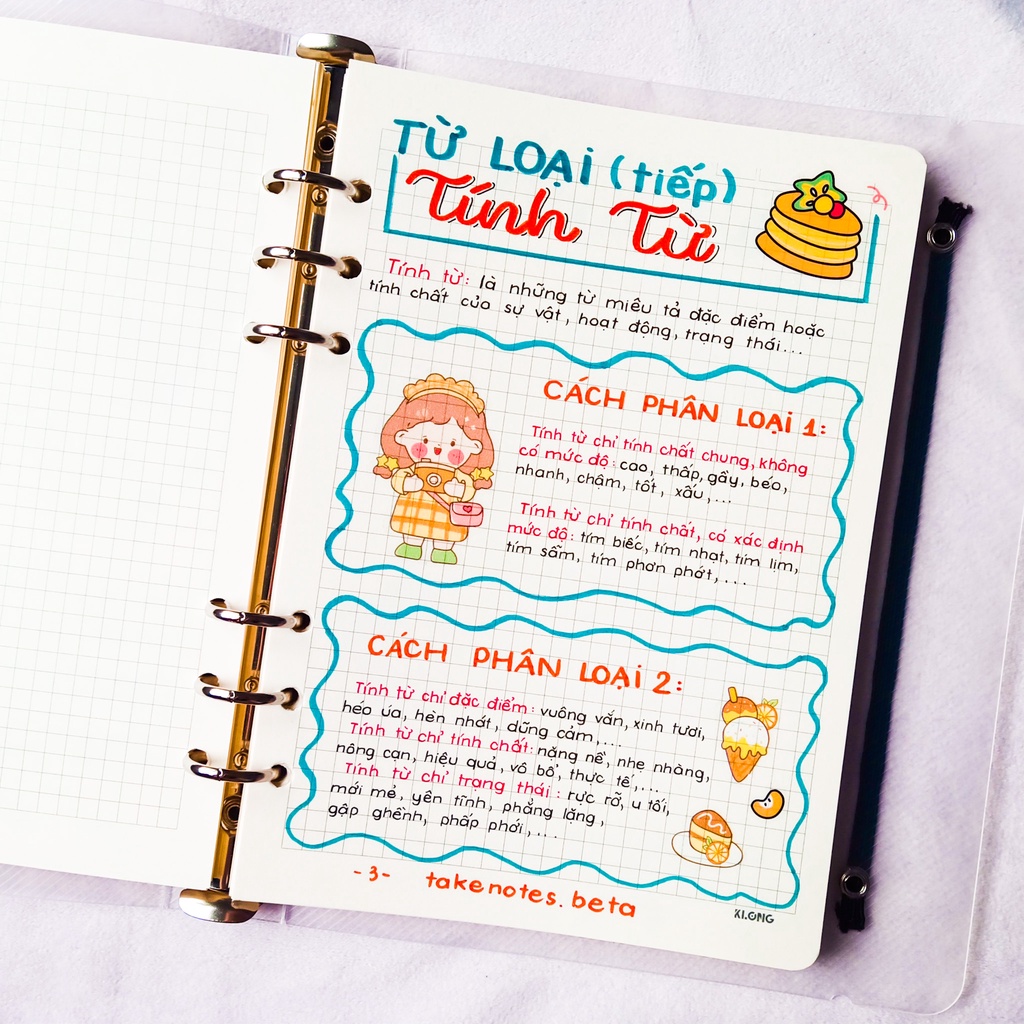 TỪ LOẠI (tiếp)
Tính Từ
Tính từ: là những từ miêu tả đặc điểm hoặc
tính chất của sự vật, hoạt động, trạng thái...
CÁCH PHÂN LOẠI 1:
Tính từ chỉ tính chất chung, không
có mức độ: cao, thấp, gầy, béo,
nhanh, chậm, tốt, xấu,...
Tính từ chỉ tính chất, có xác định
mức độ: tím biếc, tím nhạt, tím lịm,
tím sẫm, tím phơn phớt,...
CÁCH PHÂN LOẠI 2:
Tính từ chỉ đặc điểm: vuông vắn, xinh tươi,
héo úa, hèn nhát, dũng cảm,...
Tính từ chỉ tính chất: nặng nề, nhẹ nhàng,
nông cạn, hiệu quả, vô bổ, thực tế,...
Tính từ chỉ trạng thái: rực rỡ, u tối,
mới mẻ, yên tĩnh, phẳng lặng,
gập ghềnh, phấp phới,...
-3- takenotes.beta
KLONG